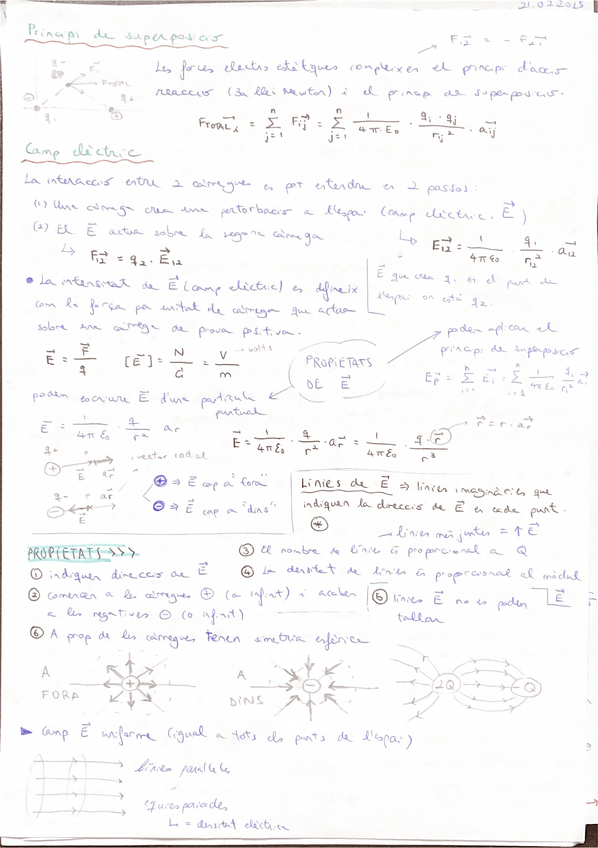 21.02.2015
Principi de superposició
F12 = - F21
Les forces electrostàtiques compleixen el principi d'acció
reacció (3a llei Newton) i el principi de superposició.
FTOTAL i = Σ Fij = Σ 1/4π·ε0 · qi·qj/rij² · aij
q-
F1
FTOTAL
q+
qi
Camp elèctric
La interacció entre 2 càrregues es pot entendre en 2 passos:
(1) Una càrrega crea una pertorbació a l'espai (camp elèctric, E)
(2) El E actua sobre la segona càrrega
↳ F12 = q2 · E12
↳ E12 = 1/4πε0 · q1/r12² · a12
E que crea q1 en el punt de
l'espai on està q2.
• La intensitat de E (camp elèctric) es defineix
com la força per unitat de càrrega que actua
sobre una càrrega de prova positiva.
E = F/q [E] = N/C = V/m
volts
PROPIETATS
DE E
podem aplicar el
principi de superposició
Ep = Σ Ei = Σ 1/4π ε0 qi/r² ai
podem escriure E d'una partícula
puntual
E = 1/4π ε0 · q/r² ar
E = 1/4π·ε0 · q/r² · ar = 1/4π·ε0 · q·r/r³
r = r · ar
q+
+ E ar
vector radial
q- ar
- E
⊕ ⇒ E cap a "fora"
⊖ ⇒ E cap a "dins"
Línies de E ⇒ línies imaginàries que
indiquen la direcció de E en cada punt.
*
línies més juntes = ↑ E
PROPIETATS >>>
① indiquen direcció de E
② comencen a les càrregues ⊕ (o infinit) i acaben
a les negatives ⊖ (o infinit)
③ El nombre de línies és proporcional a Q
④ La densitat de línies és proporcional al mòdul
E
⑤ línies E no es poden
tallar
⑥ A prop de les càrregues tenen simetria esfèrica
A
FORA
+
A
DINS
-
2Q
-Q
▶ Camp E uniforme (igual a tots els punts de l'espai)
línies paral·leles
equiespaiades
↳ = densitat elèctrica